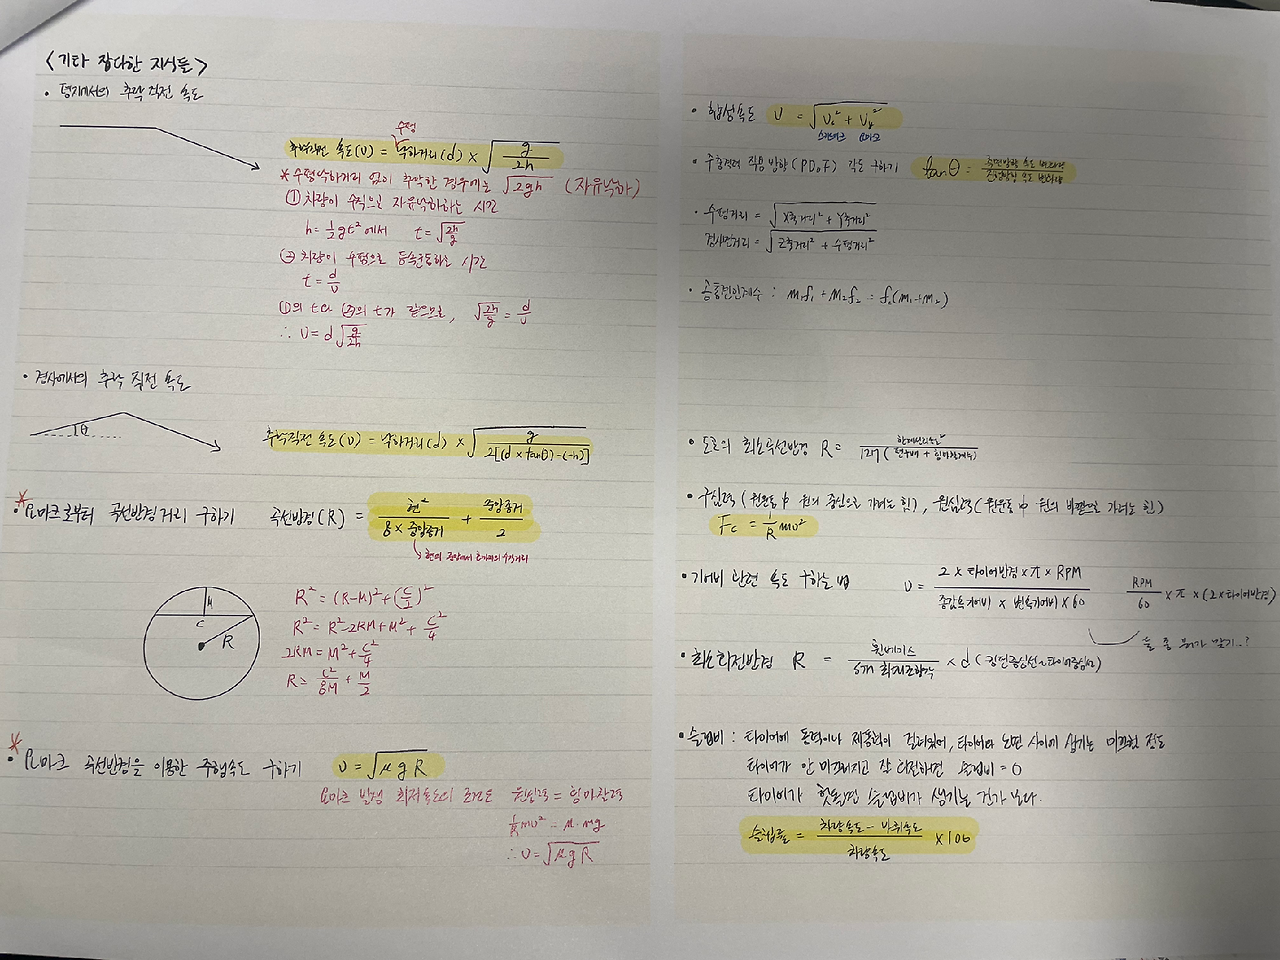 <기타 잡다한 지식들>
• 평지에서의 추락 직전 속도
수평
추락직전 속도(v) = 낙하거리(d) × √(g/2h)
* 수평낙하거리 없이 추락한 경우에는 √2gh (자유낙하)
① 차량이 수직으로 자유낙하하는 시간
h = ½gt² 에서 t = √(2h/g)
② 차량이 수평으로 등속운동하는 시간
t = d/v
①의 t와 ②의 t가 같으므로, √(2h/g) = d/v
∴ v = d√(g/2h)
• 경사에서의 추락 직전 속도
θ
추락직전 속도(v) = 낙하거리(d) × √(g/2[(d × tanθ)-(-h)])
* • 요마크로부터 곡선반경거리 구하기 곡선반경(R) = 현²/(8 × 중앙종거) + 중앙종거/2
↳ 현의 중앙에서 호까지의 수직거리
M
C
R
R² = (R-M)² + (C/2)²
R² = R²-2RM+M² + C²/4
2RM = M² + C²/4
R = C²/8M + M/2
* • 요마크 곡선반경을 이용한 주행속도 구하기 v = √μgR
요마크 발생 최저속도의 조건은 원심력 = 횡마찰력
1/R mv² = μ·mg
∴ v = √μgR
• 합성속도 v = √(Vx² + Vy²)
• 충격력 작용 방향(PDoF) 각도 구하기 tanθ = 측면방향 속도 변화량/전면방향 속도 변화량
• 수평거리 = √(X축거리² + Y축거리²)
경사면거리 = √(Z축거리² + 수평거리²)
• 공통견인계수 : m₁f₁ + m₂f₂ = f(m₁+m₂)
• 도로의 최소곡선반경 R = 한계선회속도²/127(편구배 + 횡마찰계수)
• 구심력 (원운동 中 원의 중심으로 가려는 힘), 원심력 (원운동 中 원의 바깥으로 가려는 힘)
Fc = 1/R mv²
• 기어비 관련 속도 구하는 법 v = (2 × 타이어반경 × π × RPM)/(종감속기어비 × 변속기어비 × 60) RPM/60 × π × (2×타이어반경)
둘 중 뭐가 맞지..?
• 최소회전반경 R = 휠베이스/sin 최대조향각 × d (킹핀중심선~타이어중심선)
• 슬립비 : 타이어에 동력이나 제동력이 걸려있어, 타이어와 노면 사이에 생기는 미끄럼 정도
타이어가 안 미끄러지고 잘 회전하면 슬립비 = 0
타이어가 헛돌면 슬립비가 생기는 건가 보다.
슬립률 = (차량속도 - 바퀴속도)/차량속도 × 100